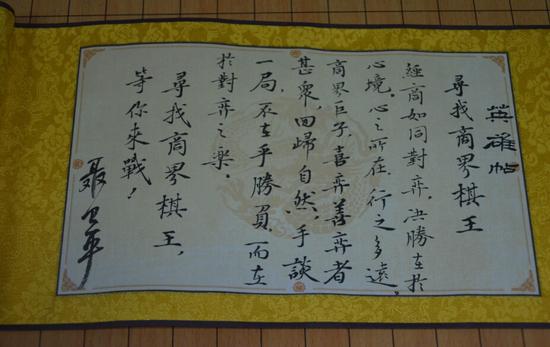 英雄帖
尋找商界棋王
經商如同對弈，決勝在於
心境，心之所在，行之多遠。
商界巨子，喜弈善弈者
甚衆，回歸自然，手談
一局，不在乎勝負，而在
於對弈之樂。
尋找商界棋王，
等你來戰！
聶卫平